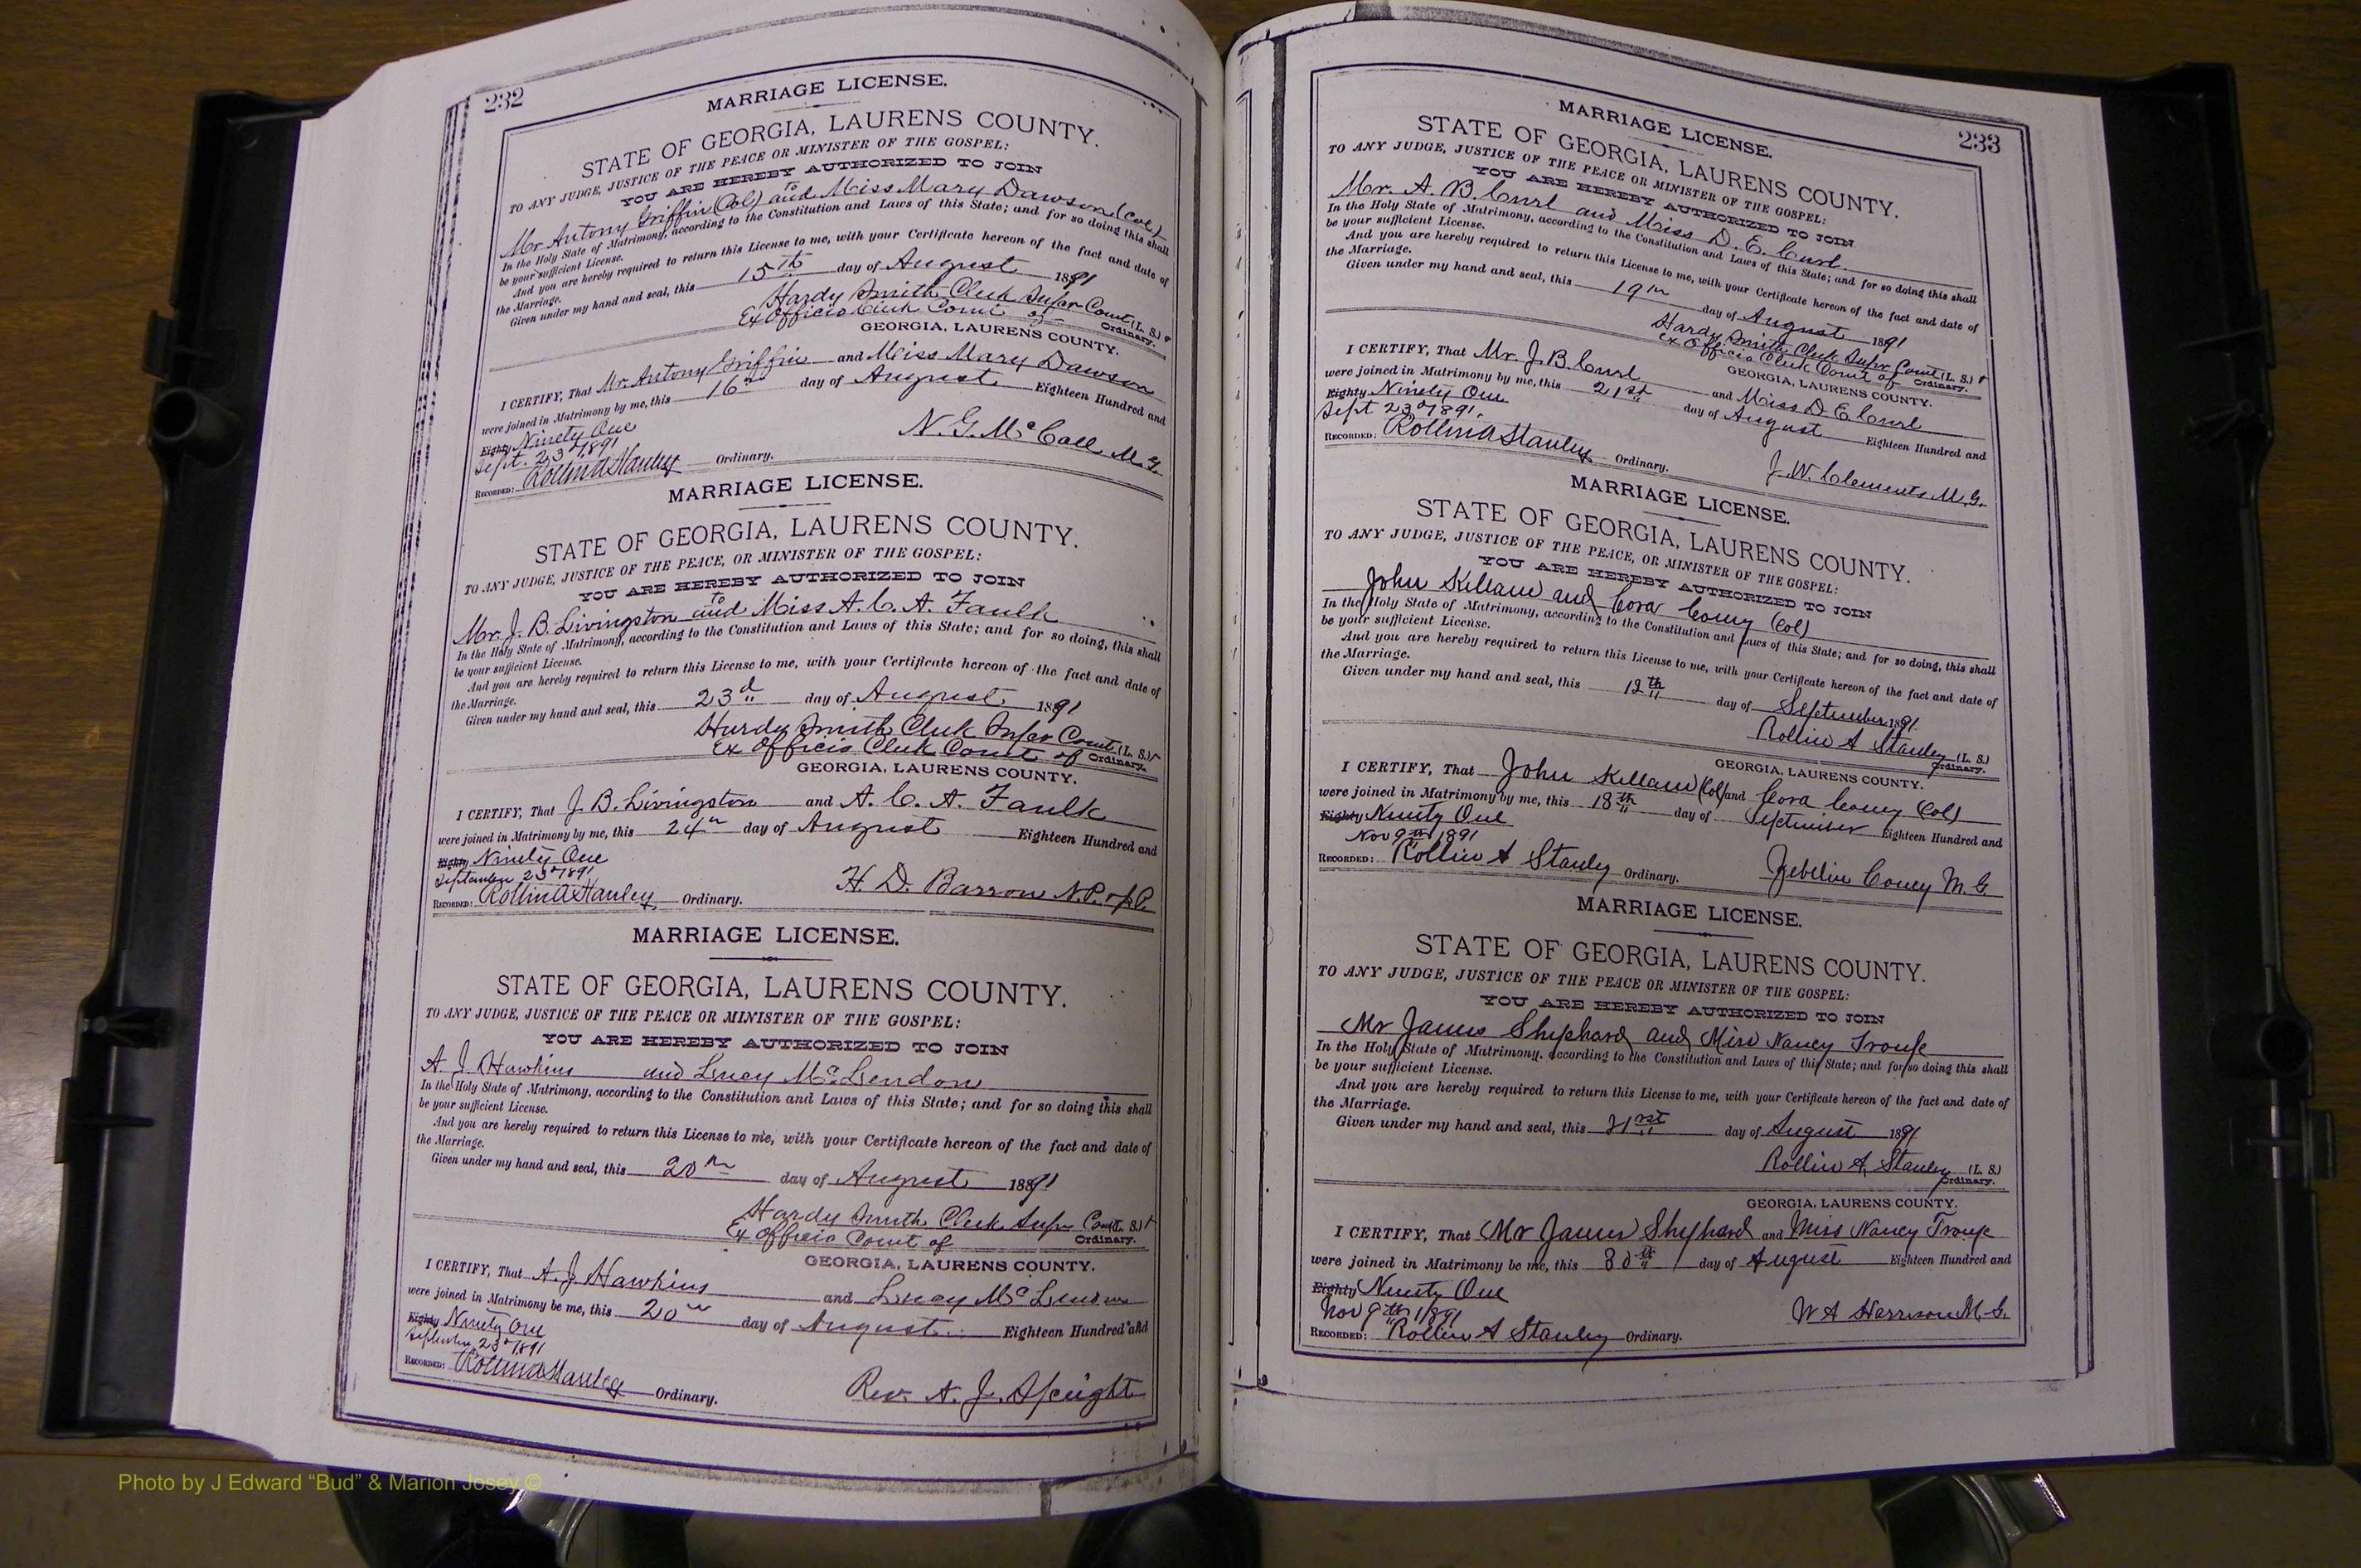 232
MARRIAGE LICENSE.
STATE OF GEORGIA, LAURENS COUNTY.
TO ANY JUDGE, JUSTICE OF THE PEACE OR MINISTER OF THE GOSPEL:
YOU ARE HEREBY AUTHORIZED TO JOIN
Mr Antony Griffin (Col) and to Miss Mary Dawson (Col)
In the Holy State of Matrimony, according to the Constitution and Laws of this State; and for so doing this shall
be your sufficient License.
And you are hereby required to return this License to me, with your Certificate hereon of the fact and date of
the Marriage.
Given under my hand and seal, this 15th day of August 1891
Hardy Smith Clerk Super Court (L. S.)
Ex Officio Clerk Court of Ordinary.
GEORGIA, LAURENS COUNTY.
I CERTIFY, That Mr. Antony Griffin and Miss Mary Dawson
were joined in Matrimony by me, this 16th day of August Eighteen Hundred and
Eighty Ninety One
Sept. 23d 1891 N. G. McCall M.G.
RECORDED: Rollin A Stanley Ordinary.
MARRIAGE LICENSE.
STATE OF GEORGIA, LAURENS COUNTY.
TO ANY JUDGE, JUSTICE OF THE PEACE, OR MINISTER OF THE GOSPEL:
YOU ARE HEREBY AUTHORIZED TO JOIN
Mr. J. B. Livingston and to Miss A. C. A. Faulk
In the Holy State of Matrimony, according to the Constitution and Laws of this State; and for so doing, this shall
be your sufficient License.
And you are hereby required to return this License to me, with your Certificate hereon of the fact and date of
the Marriage.
Given under my hand and seal, this 23d day of August 1891
Hardy Smith Clerk Super Court (L. S.)
Ex Officio Clerk Court of Ordinary.
GEORGIA, LAURENS COUNTY.
I CERTIFY, That J. B. Livingston and A. C. A. Faulk
were joined in Matrimony by me, this 24th day of August Eighteen Hundred and
Eighty Ninety One
September 23d 1891
RECORDED: Rollin A Stanley Ordinary. H. D. Barrow N.P. & J.P.
MARRIAGE LICENSE.
STATE OF GEORGIA, LAURENS COUNTY.
TO ANY JUDGE, JUSTICE OF THE PEACE OR MINISTER OF THE GOSPEL:
YOU ARE HEREBY AUTHORIZED TO JOIN
A. J. Hawkins and Lucy McLendon
In the Holy State of Matrimony, according to the Constitution and Laws of this State; and for so doing this shall
be your sufficient License.
And you are hereby required to return this License to me, with your Certificate hereon of the fact and date of
the Marriage.
Given under my hand and seal, this 20th day of August 1891
Hardy Smith Clerk Super Court (L. S.)
Ex Officio Court of Ordinary.
GEORGIA, LAURENS COUNTY.
I CERTIFY, That A. J. Hawkins and Lucy McLendon
were joined in Matrimony be me, this 20th day of August Eighteen Hundred and
Eighty Ninety One
September 23d 1891
RECORDED: Rollin A Stanley Ordinary. Rev. A. J. Speight
233
MARRIAGE LICENSE.
STATE OF GEORGIA, LAURENS COUNTY.
TO ANY JUDGE, JUSTICE OF THE PEACE OR MINISTER OF THE GOSPEL:
YOU ARE HEREBY AUTHORIZED TO JOIN
Mr. A. B. Curl and Miss D. E. Curl
In the Holy State of Matrimony, according to the Constitution and Laws of this State; and for so doing this shall
be your sufficient License.
And you are hereby required to return this License to me, with your Certificate hereon of the fact and date of
the Marriage.
Given under my hand and seal, this 19th day of August 1891
Hardy Smith Clerk Super Court (L. S.)
Ex Officio Clerk Court of Ordinary.
GEORGIA, LAURENS COUNTY.
I CERTIFY, That Mr. J. B. Curl and Miss D. E. Curl
were joined in Matrimony by me, this 21st day of August Eighteen Hundred and
Eighty Ninety One
Sept 23d 1891.
RECORDED: Rollin A Stanley Ordinary. J. W. Clements M.G.
MARRIAGE LICENSE.
STATE OF GEORGIA, LAURENS COUNTY.
TO ANY JUDGE, JUSTICE OF THE PEACE, OR MINISTER OF THE GOSPEL:
YOU ARE HEREBY AUTHORIZED TO JOIN
John Kellam and Cora Coney (Col)
In the Holy State of Matrimony, according to the Constitution and Laws of this State; and for so doing, this shall
be your sufficient License.
And you are hereby required to return this License to me, with your Certificate hereon of the fact and date of
the Marriage.
Given under my hand and seal, this 12th day of September 1891
Rollin A Stanley (L. S.)
Ordinary.
GEORGIA, LAURENS COUNTY.
I CERTIFY, That John Kellam (Col) and Cora Coney (Col)
were joined in Matrimony by me, this 13th day of September Eighteen Hundred and
Eighty Ninety One
Nov 9th 1891
RECORDED: Rollin A Stanley Ordinary. Coney M. G.
MARRIAGE LICENSE.
STATE OF GEORGIA, LAURENS COUNTY.
TO ANY JUDGE, JUSTICE OF THE PEACE OR MINISTER OF THE GOSPEL:
YOU ARE HEREBY AUTHORIZED TO JOIN
Mr James Shephard and Miss Nancy Troup
In the Holy State of Matrimony, according to the Constitution and Laws of this State; and for so doing this shall
be your sufficient License.
And you are hereby required to return this License to me, with your Certificate hereon of the fact and date of
the Marriage.
Given under my hand and seal, this 21st day of August 1891
Rollin A. Stanley (L. S.)
Ordinary.
GEORGIA, LAURENS COUNTY.
I CERTIFY, That Mr James Shephard and Miss Nancy Troup
were joined in Matrimony be me, this 30th day of August Eighteen Hundred and
Eighty Ninety One
Nov 9th 1891 W A Harrison M. G.
RECORDED: Rollin A Stanley Ordinary.
Photo by J Edward “Bud” & Marion Josey ©